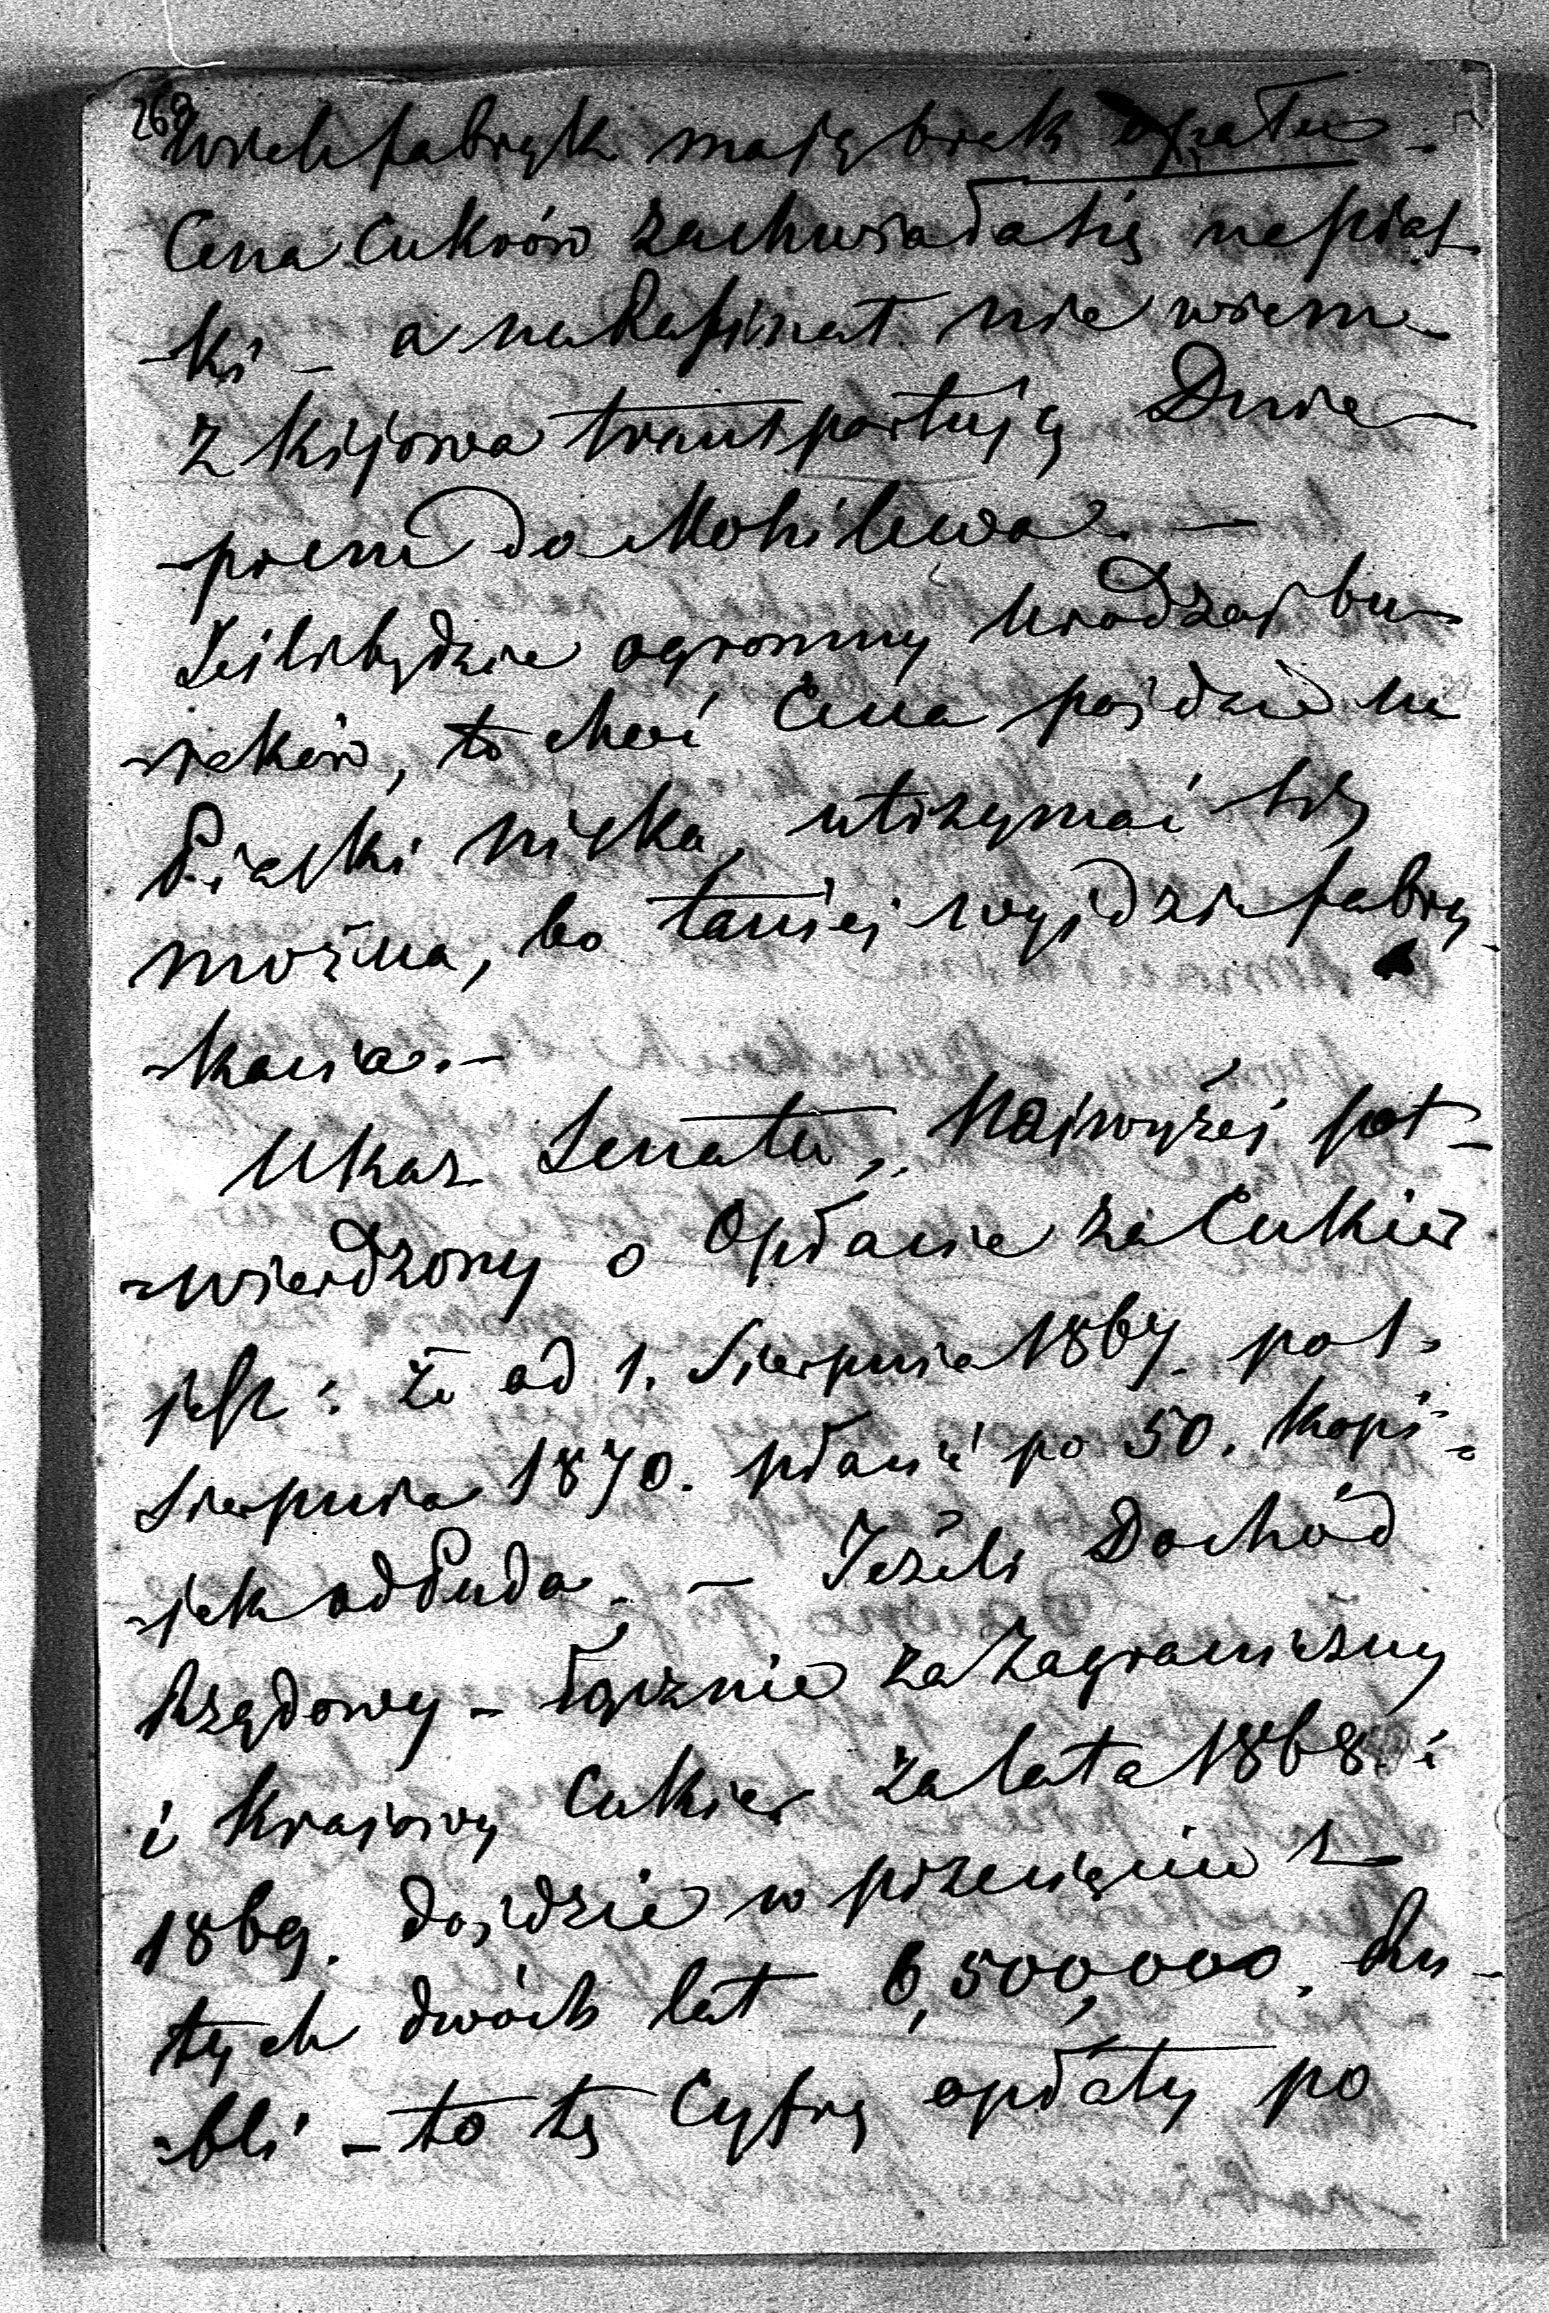 268
wielu fabryk mają brak opału -
Cena Cukrów zachwiała się na pias-
-ki - a na Rafinat nie wiem -
z Kijowa transportują Dnie-
-prem do Mohilewa. -
Jeśli będzie ogromny urodzaj bu-
-raków, to choć Cena pójdzie na
Piaski nizka, utrzymać się
można, bo taniej wyjdzie fabry-
-kacia. -
Ukaz Senatu, Najwyżej pot-
-wierdzony o Opłacie za Cukier
jest: że od 1. Sierpnia 1867. po 1.
Sierpnia 1870. płacić po 50. kopi-
-jek od Puda. - Jeżeli Dochód
Rządowy - łącznie za Zagraniczny
i Krajowy Cukier za lata 1868. i
1869. dojdzie w przecięciu z
tych dwóch lat 6,500,000. Ru-
-bli - to tę Cyfrę opłaty po